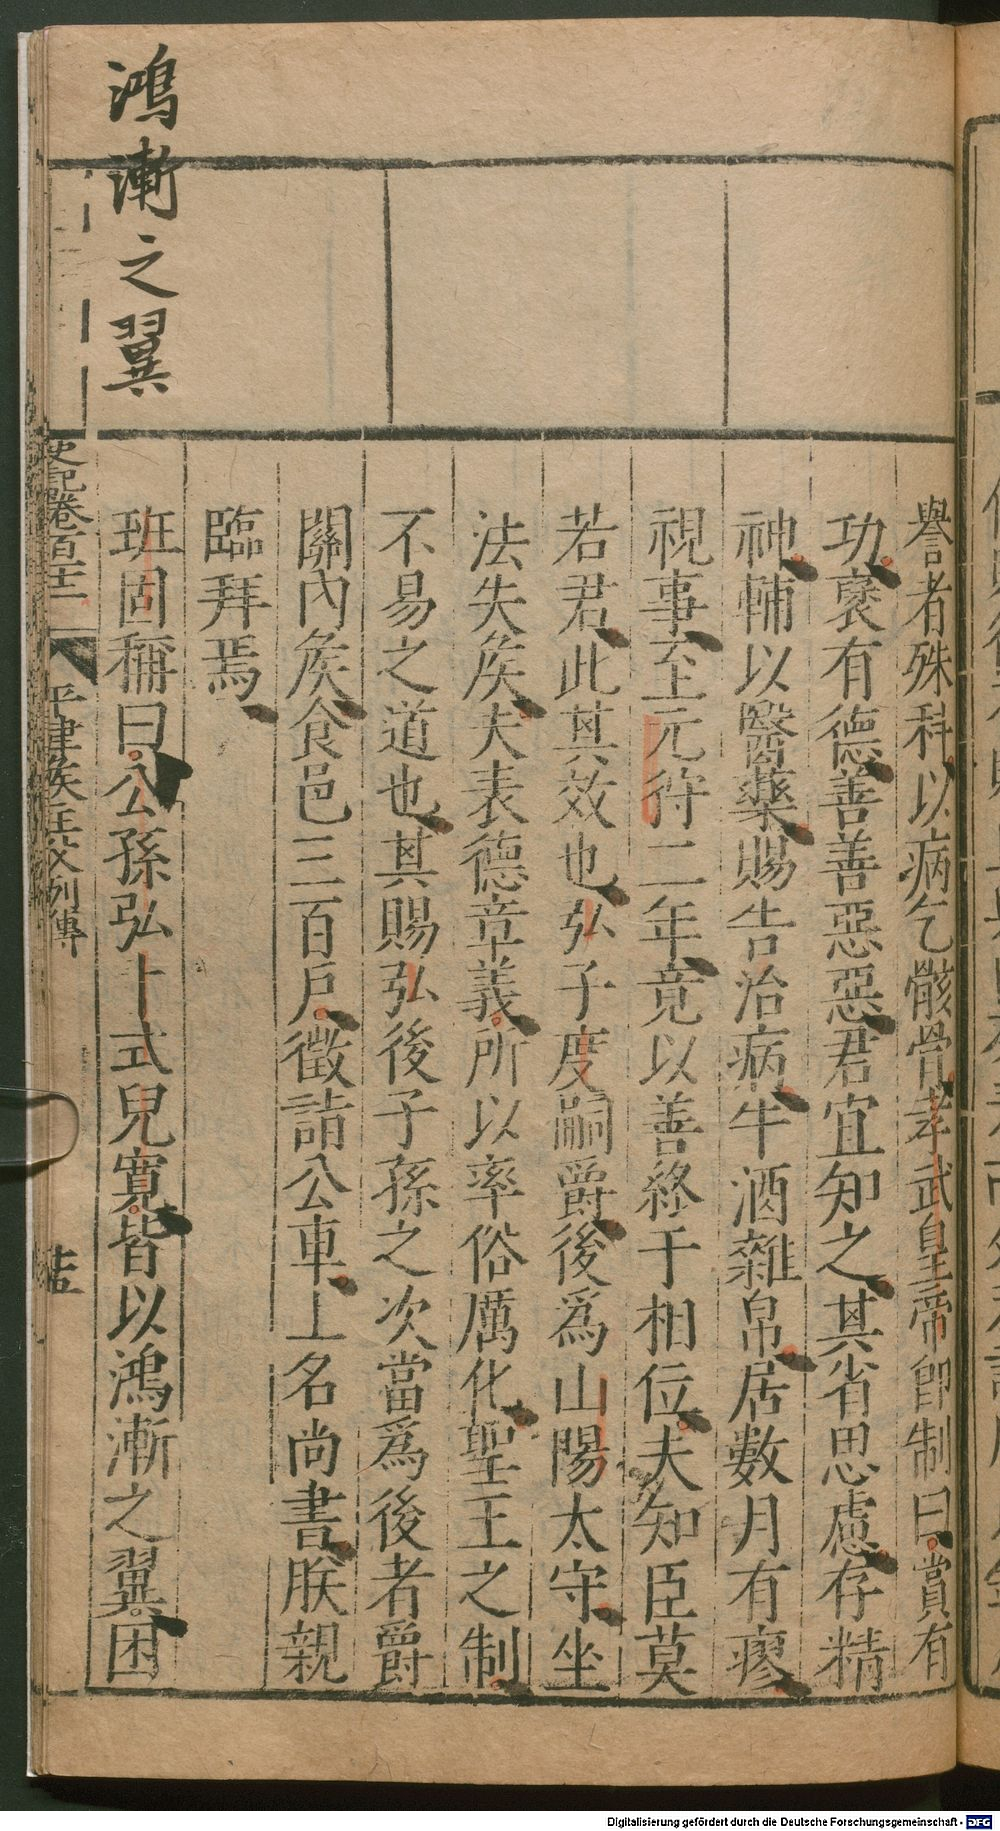 譽者殊科以病乞骸骨孝武皇帝卽制曰賞有
功襃有德善善惡惡君宜知之其省思慮存精
神輔以醫藥賜告治病牛酒雜帛居數月有瘳
視事至元狩二年竟以善終于相位夫知臣莫
若君此其效也弘子度嗣爵後爲山陽太守坐
法失矦夫表德章義所以率俗厲化聖王之制
不易之道也其賜弘後子孫之次當爲後者爵
關內矦食邑三百戶徵詣公車上名尚書朕親
臨拜焉
班固稱曰公孫弘卜式兒寬皆以鴻漸之翼困
鴻漸之翼
史記卷百十二
平津矦主父列傳
Digitalisierung gefördert durch die Deutsche Forschungsgemeinschaft - DFG